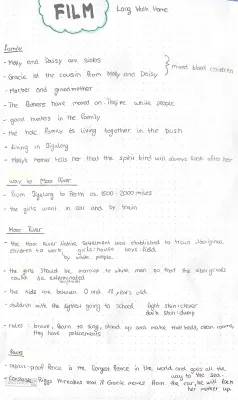 FILM
Long Walk Home
Family
- Molly and Daisy are sisters
- Gracie is the cousin from Molly and Daisy
} mixed blood children
- Mother and grandmother
- The farmers have moved on to the white people
- good hunters in the family
- the hole family is living together in the bush
- living in Jigalong
- Molly's mother tells her that the spirit bird will always look after her
way to Moor River
- from Jigalong to Perth ca. 1500 - 2000 miles
- the girls went in car and by train
Moor River
- the Moor River Native Settlement was established to train Aborigine
children to work, girls: house boys: field
by white people
- the girls should be married to white men so that the aboriginals
could be exterminated
- the kids are between 0 and 18 years old
- children with the lightest going to school light skin = clever
dark skin = dump
- rules: brave, learn to sing, stand up and make their beds, clean rooms,
they have
- rabbit-proof fence is the longest fence in the world and goes all the
way to the sea
- Riggs threatens that if Gracie moves from the car, he will lock
her mother up